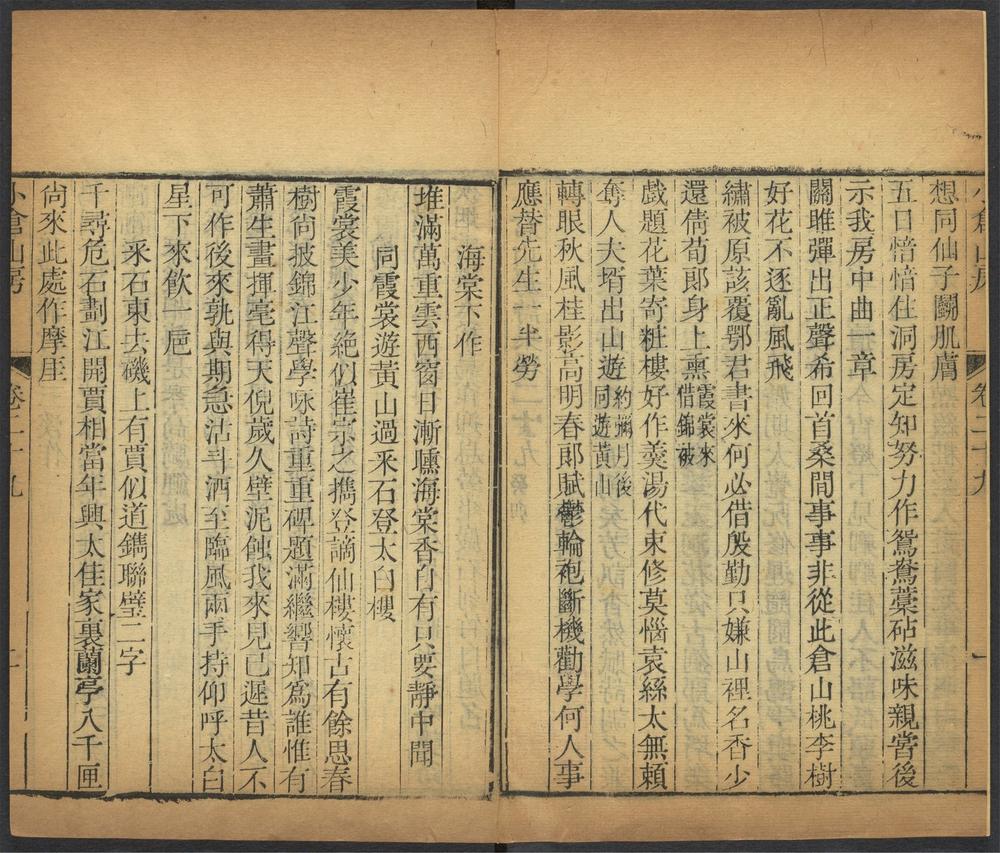 小倉山房 卷二十九 一
想同仙子鬬肌膚
五日愔愔住洞房定知努力作鴛鴦藁砧滋味親嘗後
示我房中曲一章
關雎彈出正聲希回首桑間事事非從此倉山桃李樹
好花不逐亂風飛
繡被原該覆鄂君書來何必借殷勤只嫌山裡名香少
還倩荀郎身上熏霞裳來借錦被
戲題花葉寄粧樓好作羹湯代束修莫惱袁絲太無賴
奪人夫壻出山遊約彌月後同遊黃山
轉眼秋風桂影高明春郎賦鬱輪袍斷機勸學何人事
應替先生一半勞
海棠下作
堆滿萬重雲西窗日漸曛海棠香自有只要靜中聞
同霞裳遊黃山過釆石登太白樓
霞裳美少年絶似崔宗之攜登謫仙樓懷古有餘思春
樹尙披錦江聲學咏詩重重碑題滿繼響知爲誰惟有
蕭生畫揮毫得天倪歲久壁泥蝕我來見已遲昔人不
可作後來孰與期急沽斗酒至臨風兩手持仰呼太白
星下來飲一巵
釆石東去磯上有賈似道鐫聯璧二字
千尋危石劃江開賈相當年興太佳家裏蘭亭八千匣
尙來此處作摩厓
小倉山房 卷二十九 二